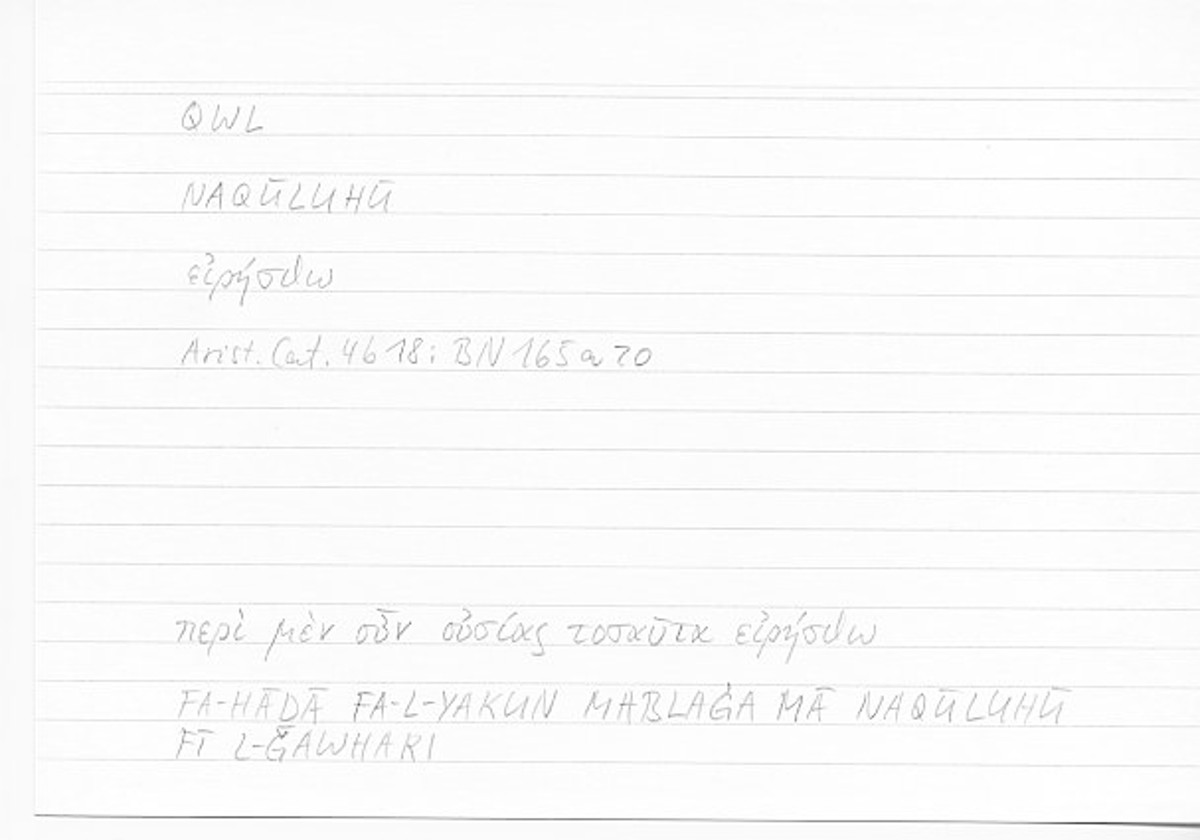 QWL
NAQŪLUHŪ
εἰρήσθω
Arist. Cat. 4b18; BN 165a20
περὶ μὲν οὖν οὐσίας τοσαῦτα εἰρήσθω
FA-HĀḎĀ FA-L-YAKUN MABLAĠA MĀ NAQŪLUHŪ
FĪ L-ǦAWHARI